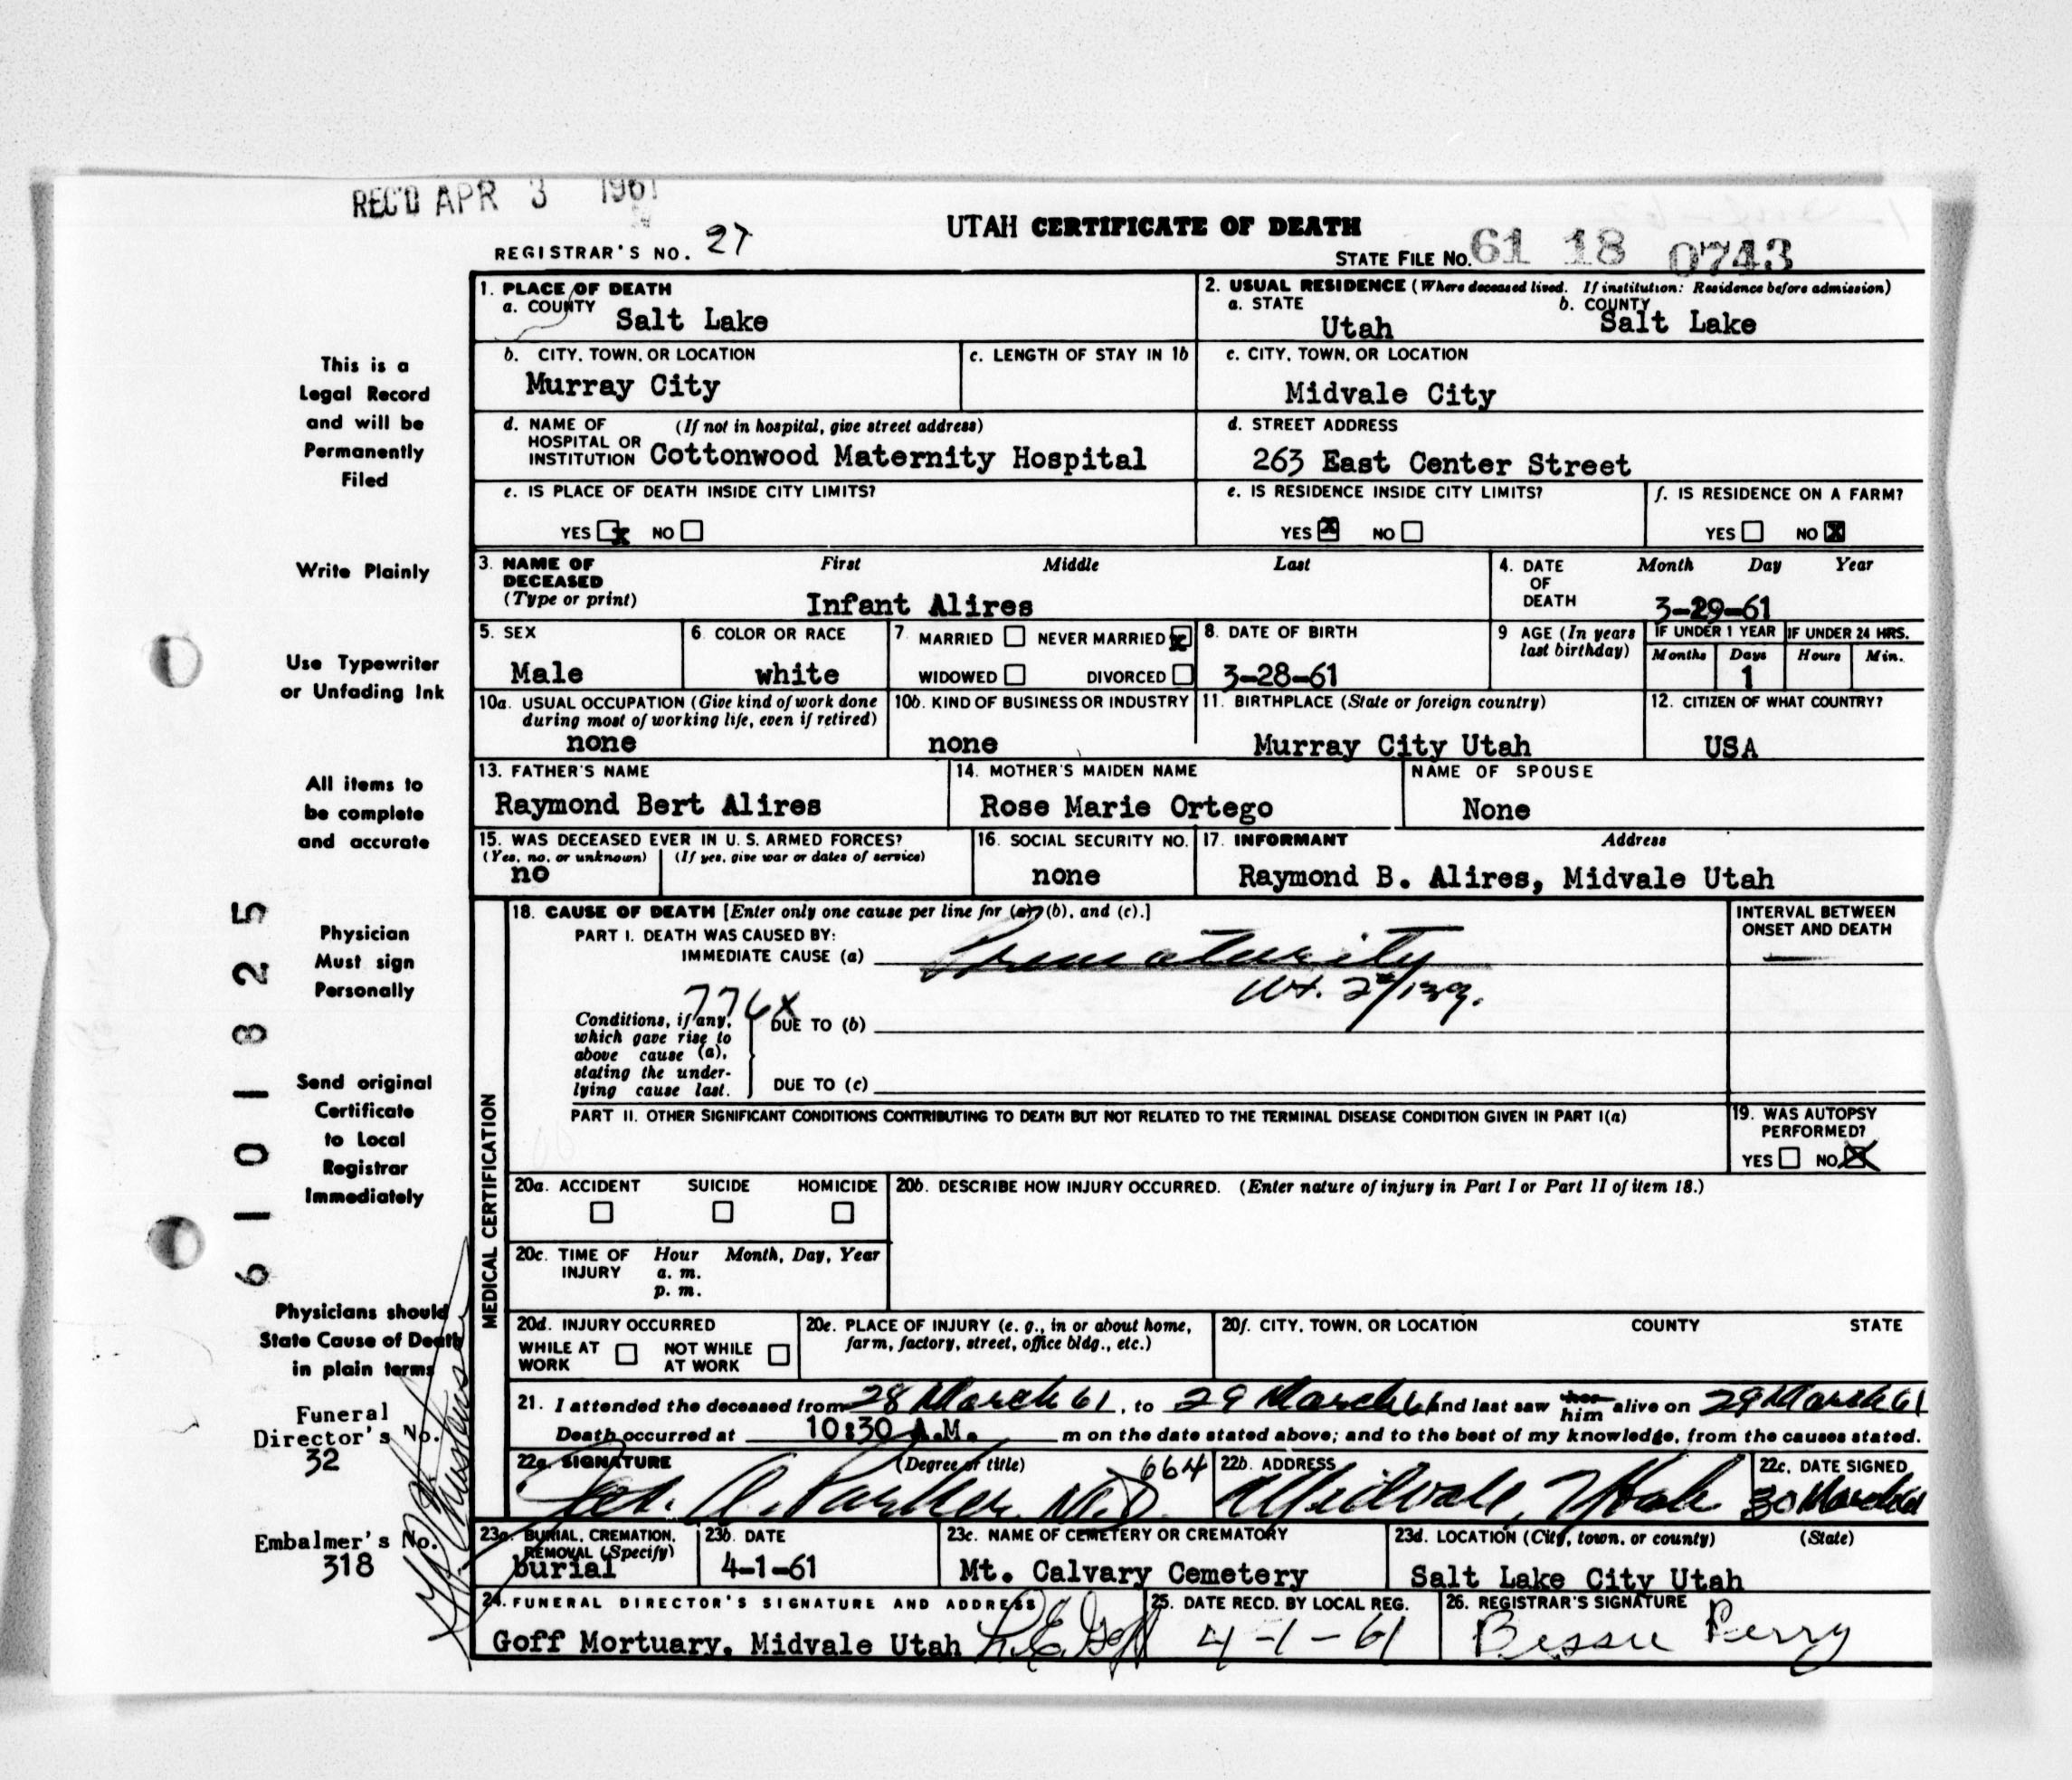 REC'D APR 3 1961
UTAH CERTIFICATE OF DEATH
REGISTRAR'S NO. 27
STATE FILE NO. 61 18 0743
1. PLACE OF DEATH
a. COUNTY Salt Lake
2. USUAL RESIDENCE (Where deceased lived. If institution: Residence before admission)
a. STATE Utah b. COUNTY Salt Lake
b. CITY, TOWN, OR LOCATION Murray City
c. LENGTH OF STAY IN 1b
c. CITY, TOWN, OR LOCATION Midvale City
d. NAME OF HOSPITAL OR INSTITUTION (If not in hospital, give street address) Cottonwood Maternity Hospital
d. STREET ADDRESS 263 East Center Street
e. IS PLACE OF DEATH INSIDE CITY LIMITS?
YES x NO
e. IS RESIDENCE INSIDE CITY LIMITS?
YES x NO
f. IS RESIDENCE ON A FARM?
YES NO x
3. NAME OF DECEASED (Type or print) First Middle Last
Infant Alires
4. DATE OF DEATH Month Day Year
3-29-61
5. SEX Male
6. COLOR OR RACE white
7. MARRIED NEVER MARRIED x
WIDOWED DIVORCED
8. DATE OF BIRTH 3-28-61
9 AGE (In years last birthday)
IF UNDER 1 YEAR IF UNDER 24 HRS.
Months Days Hours Min.
1
10a. USUAL OCCUPATION (Give kind of work done during most of working life, even if retired) none
10b. KIND OF BUSINESS OR INDUSTRY none
11. BIRTHPLACE (State or foreign country) Murray City Utah
12. CITIZEN OF WHAT COUNTRY? USA
13. FATHER'S NAME Raymond Bert Alires
14. MOTHER'S MAIDEN NAME Rose Marie Ortego
NAME OF SPOUSE None
15. WAS DECEASED EVER IN U. S. ARMED FORCES?
(Yes, no, or unknown) (If yes, give war or dates of service)
no
16. SOCIAL SECURITY NO. none
17. INFORMANT Address
Raymond B. Alires, Midvale Utah
MEDICAL CERTIFICATION
18. CAUSE OF DEATH [Enter only one cause per line for (a), (b), and (c).]
PART I. DEATH WAS CAUSED BY:
IMMEDIATE CAUSE (a) Prematurity
INTERVAL BETWEEN ONSET AND DEATH
776X
Conditions, if any, which gave rise to above cause (a), stating the underlying cause last.
DUE TO (b)
DUE TO (c)
PART II. OTHER SIGNIFICANT CONDITIONS CONTRIBUTING TO DEATH BUT NOT RELATED TO THE TERMINAL DISEASE CONDITION GIVEN IN PART I(a)
19. WAS AUTOPSY PERFORMED?
YES NO X
20a. ACCIDENT SUICIDE HOMICIDE
20b. DESCRIBE HOW INJURY OCCURRED. (Enter nature of injury in Part I or Part II of item 18.)
20c. TIME OF INJURY Hour Month, Day, Year
a. m.
p. m.
20d. INJURY OCCURRED
WHILE AT WORK NOT WHILE AT WORK
20e. PLACE OF INJURY (e. g., in or about home, farm, factory, street, office bldg., etc.)
20f. CITY, TOWN, OR LOCATION COUNTY STATE
21. I attended the deceased from 28 March 61, to 29 March 61 and last saw her him alive on 29 March 61
Death occurred at 10:30 A.M. m on the date stated above; and to the best of my knowledge, from the causes stated.
22a. SIGNATURE (Degree or title) 664
A. M.D.
22b. ADDRESS Midvale, Utah
22c. DATE SIGNED 30 March 61
23a. BURIAL, CREMATION, REMOVAL (Specify) burial
23b. DATE 4-1-61
23c. NAME OF CEMETERY OR CREMATORY Mt. Calvary Cemetery
23d. LOCATION (City, town, or county) (State) Salt Lake City Utah
24. FUNERAL DIRECTOR'S SIGNATURE AND ADDRESS
Goff Mortuary, Midvale Utah
25. DATE RECD. BY LOCAL REG. 4-1-61
26. REGISTRAR'S SIGNATURE Bessie Perry
This is a
Legal Record
and will be
Permanently
Filed
Write Plainly
Use Typewriter
or Unfading Ink
All items to
be complete
and accurate
Physician
Must sign
Personally
Send original
Certificate
to Local
Registrar
Immediately
Physicians should
State Cause of Death
in plain terms
Funeral
Director's No.
32
Embalmer's No.
318
6101825